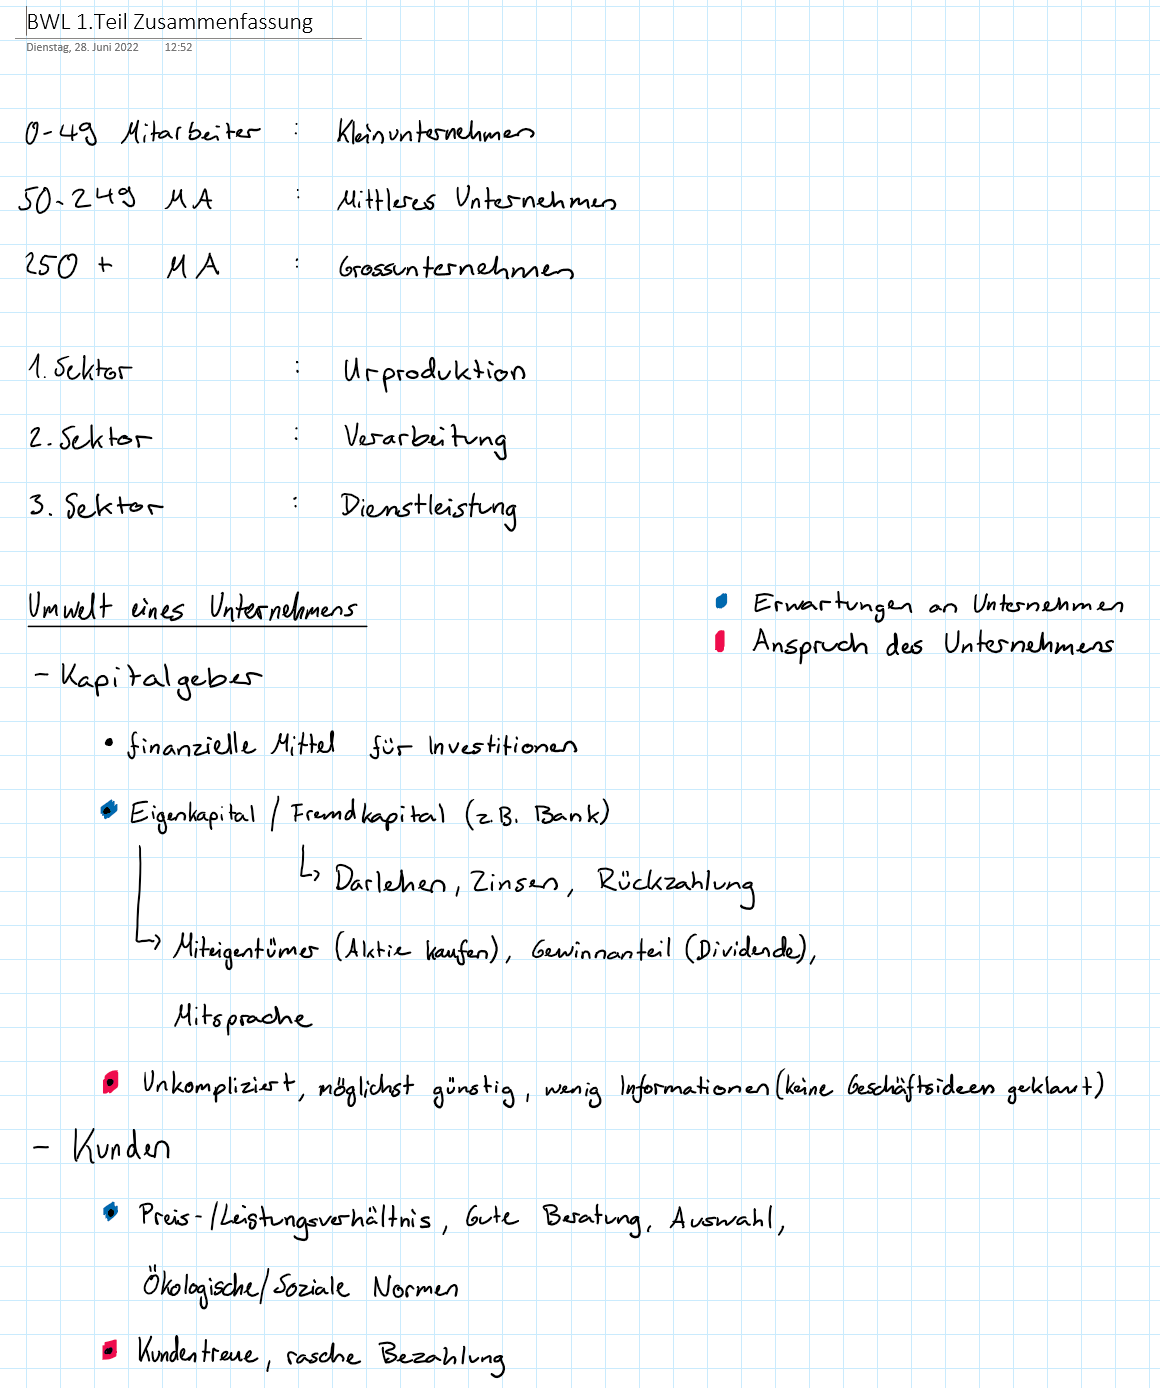 BWL 1.Teil Zusammenfassung
Dienstag, 28. Juni 2022 12:52
0-49 Mitarbeiter : Kleinunternehmen
50-249 MA : Mittleres Unternehmen
250 + MA : Grossunternehmen
1. Sektor : Urproduktion
2. Sektor : Verarbeitung
3. Sektor : Dienstleistung
Umwelt eines Unternehmens
Erwartungen an Unternehmen
Anspruch des Unternehmens
- Kapitalgeber
• finanzielle Mittel für Investitionen
• Eigenkapital / Fremdkapital (z.B. Bank)
↳ Darlehen, Zinsen, Rückzahlung
↳ Miteigentümer (Aktie kaufen), Gewinnanteil (Dividende),
Mitsprache
• Unkompliziert, möglichst günstig, wenig Informationen (keine Geschäftsideen geklaut)
- Kunden
• Preis-/Leistungsverhältnis, Gute Beratung, Auswahl,
Ökologische/Soziale Normen
• Kundentreue, rasche Bezahlung